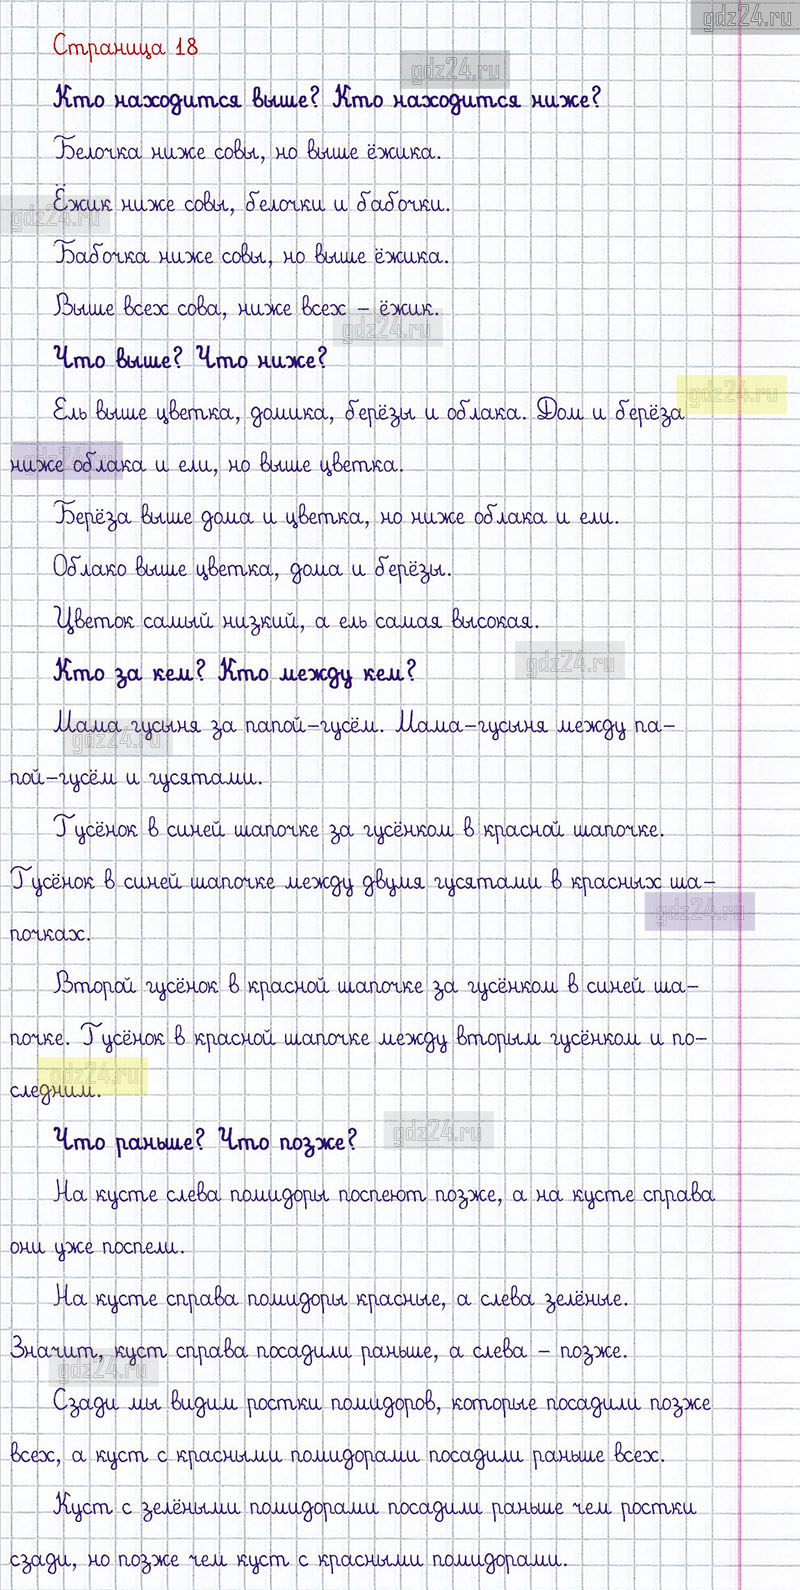 gdz24.ru
Страница 18
gdz24.ru
Кто находится выше? Кто находится ниже?
Белочка ниже совы, но выше ёжика.
Ёжик ниже совы, белочки и бабочки.
gdz24.ru
Бабочка ниже совы, но выше ёжика.
Выше всех сова, ниже всех – ёжик.
gdz24.ru
Что выше? Что ниже?
gdz24.ru
Ель выше цветка, домика, берёзы и облака. Дом и берёза
ниже облака и ели, но выше цветка.
gdz24.ru
Берёза выше дома и цветка, но ниже облака и ели.
Облако выше цветка, дома и берёзы.
Цветок самый низкий, а ель самая высокая.
gdz24.ru
Кто за кем? Кто между кем?
Мама гусыня за папой-гусём. Мама-гусыня между па-
gdz24.ru
пой-гусём и гусятами.
Гусёнок в синей шапочке за гусёнком в красной шапочке.
Гусёнок в синей шапочке между двумя гусятами в красных ша-
gdz24.ru
почках.
Второй гусёнок в красной шапочке за гусёнком в синей ша-
почке. Гусёнок в красной шапочке между вторым гусёнком и по-
gdz24.ru
следним.
gdz24.ru
Что раньше? Что позже?
На кусте слева помидоры поспеют позже, а на кусте справа
они уже поспели.
На кусте справа помидоры красные, а слева зелёные.
Значит, куст справа посадили раньше, а слева – позже.
gdz24.ru
Сзади мы видим ростки помидоров, которые посадили позже
всех, а куст с красными помидорами посадили раньше всех.
Куст с зелёными помидорами посадили раньше чем ростки
сзади, но позже чем куст с красными помидорами.